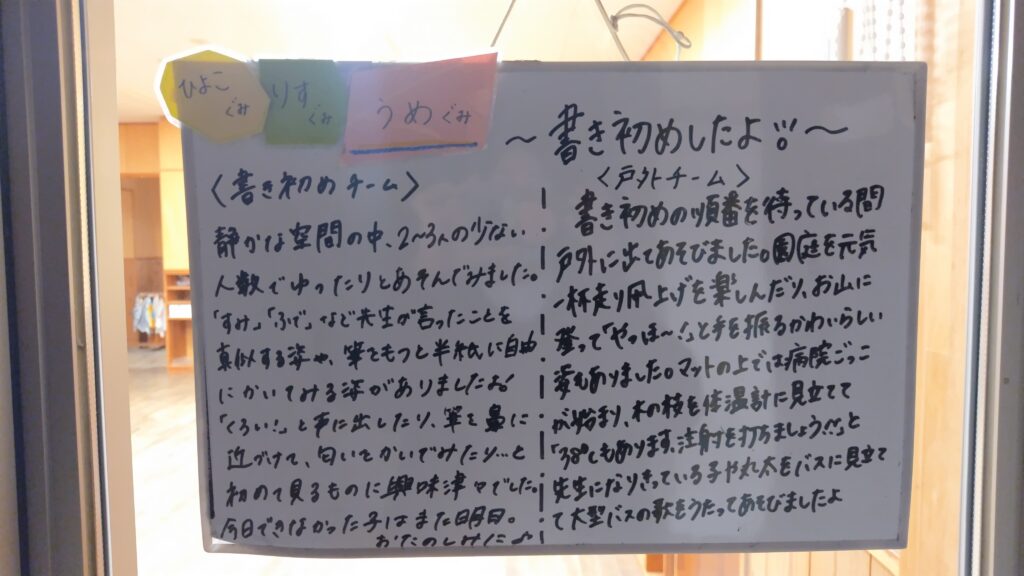 ひよこぐみ
りすぐみ
うめぐみ
～書き初めしたよ!!～
〈書き初めチーム〉
静かな空間の中、2～3人の少ない
人数でゆったりとあそんでみました。
「すみ」「ふで」など先生が言ったことを
真似する姿や、筆をもつと半紙に自由
にかいてみる姿がありましたよ!
「くろい!」と声に出したり、筆を鼻に
近づけて、匂いをかいでみたり…と
初めて見るものに興味津々でした。
今日できなかった子はまた明日。
おたのしみに♪
〈戸外チーム〉
書き初めの順番を待っている間
戸外に出てあそびました。園庭を元気
一杯走り凧上げを楽しんだり、お山に
登って「やっほ～!」と手を振るかわいらしい
姿もありました。マットの上では病院ごっこ
が始まり、木の枝を体温計に見立てて
「38°もあります、注射を打ちましょう」と
先生になりきっている子や丸太をバスに見立て
て大型バスの歌をうたってあそびましたよ